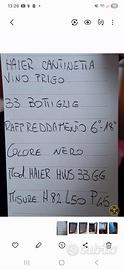 13:26
HAIER CANTINETTA
VINO FRIGO
33 BOTTIGLIE
RAFFREDDAMENTO 6°-18°
COLORE NERO
Mod. HAIER HWS 33GG
MISURE H 82 L 50 P 46